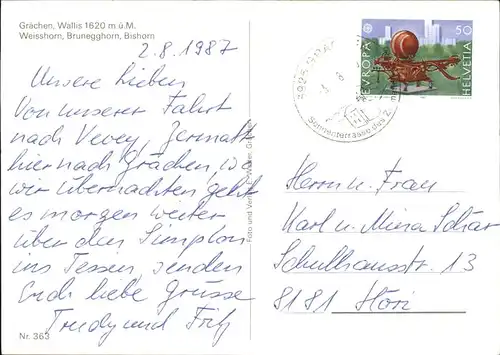 Grächen, Wallis 1620 m ü.M.
Weisshorn, Brunegghorn, Bishorn
2.8.1987
Unsere Lieben
Von unserer Fahrt
nach Vevey, Zermatt
hier nach Grächen, wo
wir übernachten geht
es morgen weiter
über den Simplon
ins Tessin, senden
Euch liebe Grüsse
Trudy und Fritz
Nr. 363
Foto und Verlag E.
EUROPA
50
HELVETIA
Sonnenterrasse des
Herrn u. Frau
Karl u. Mina Schär
Schulhausstr. 13
8181 Höri